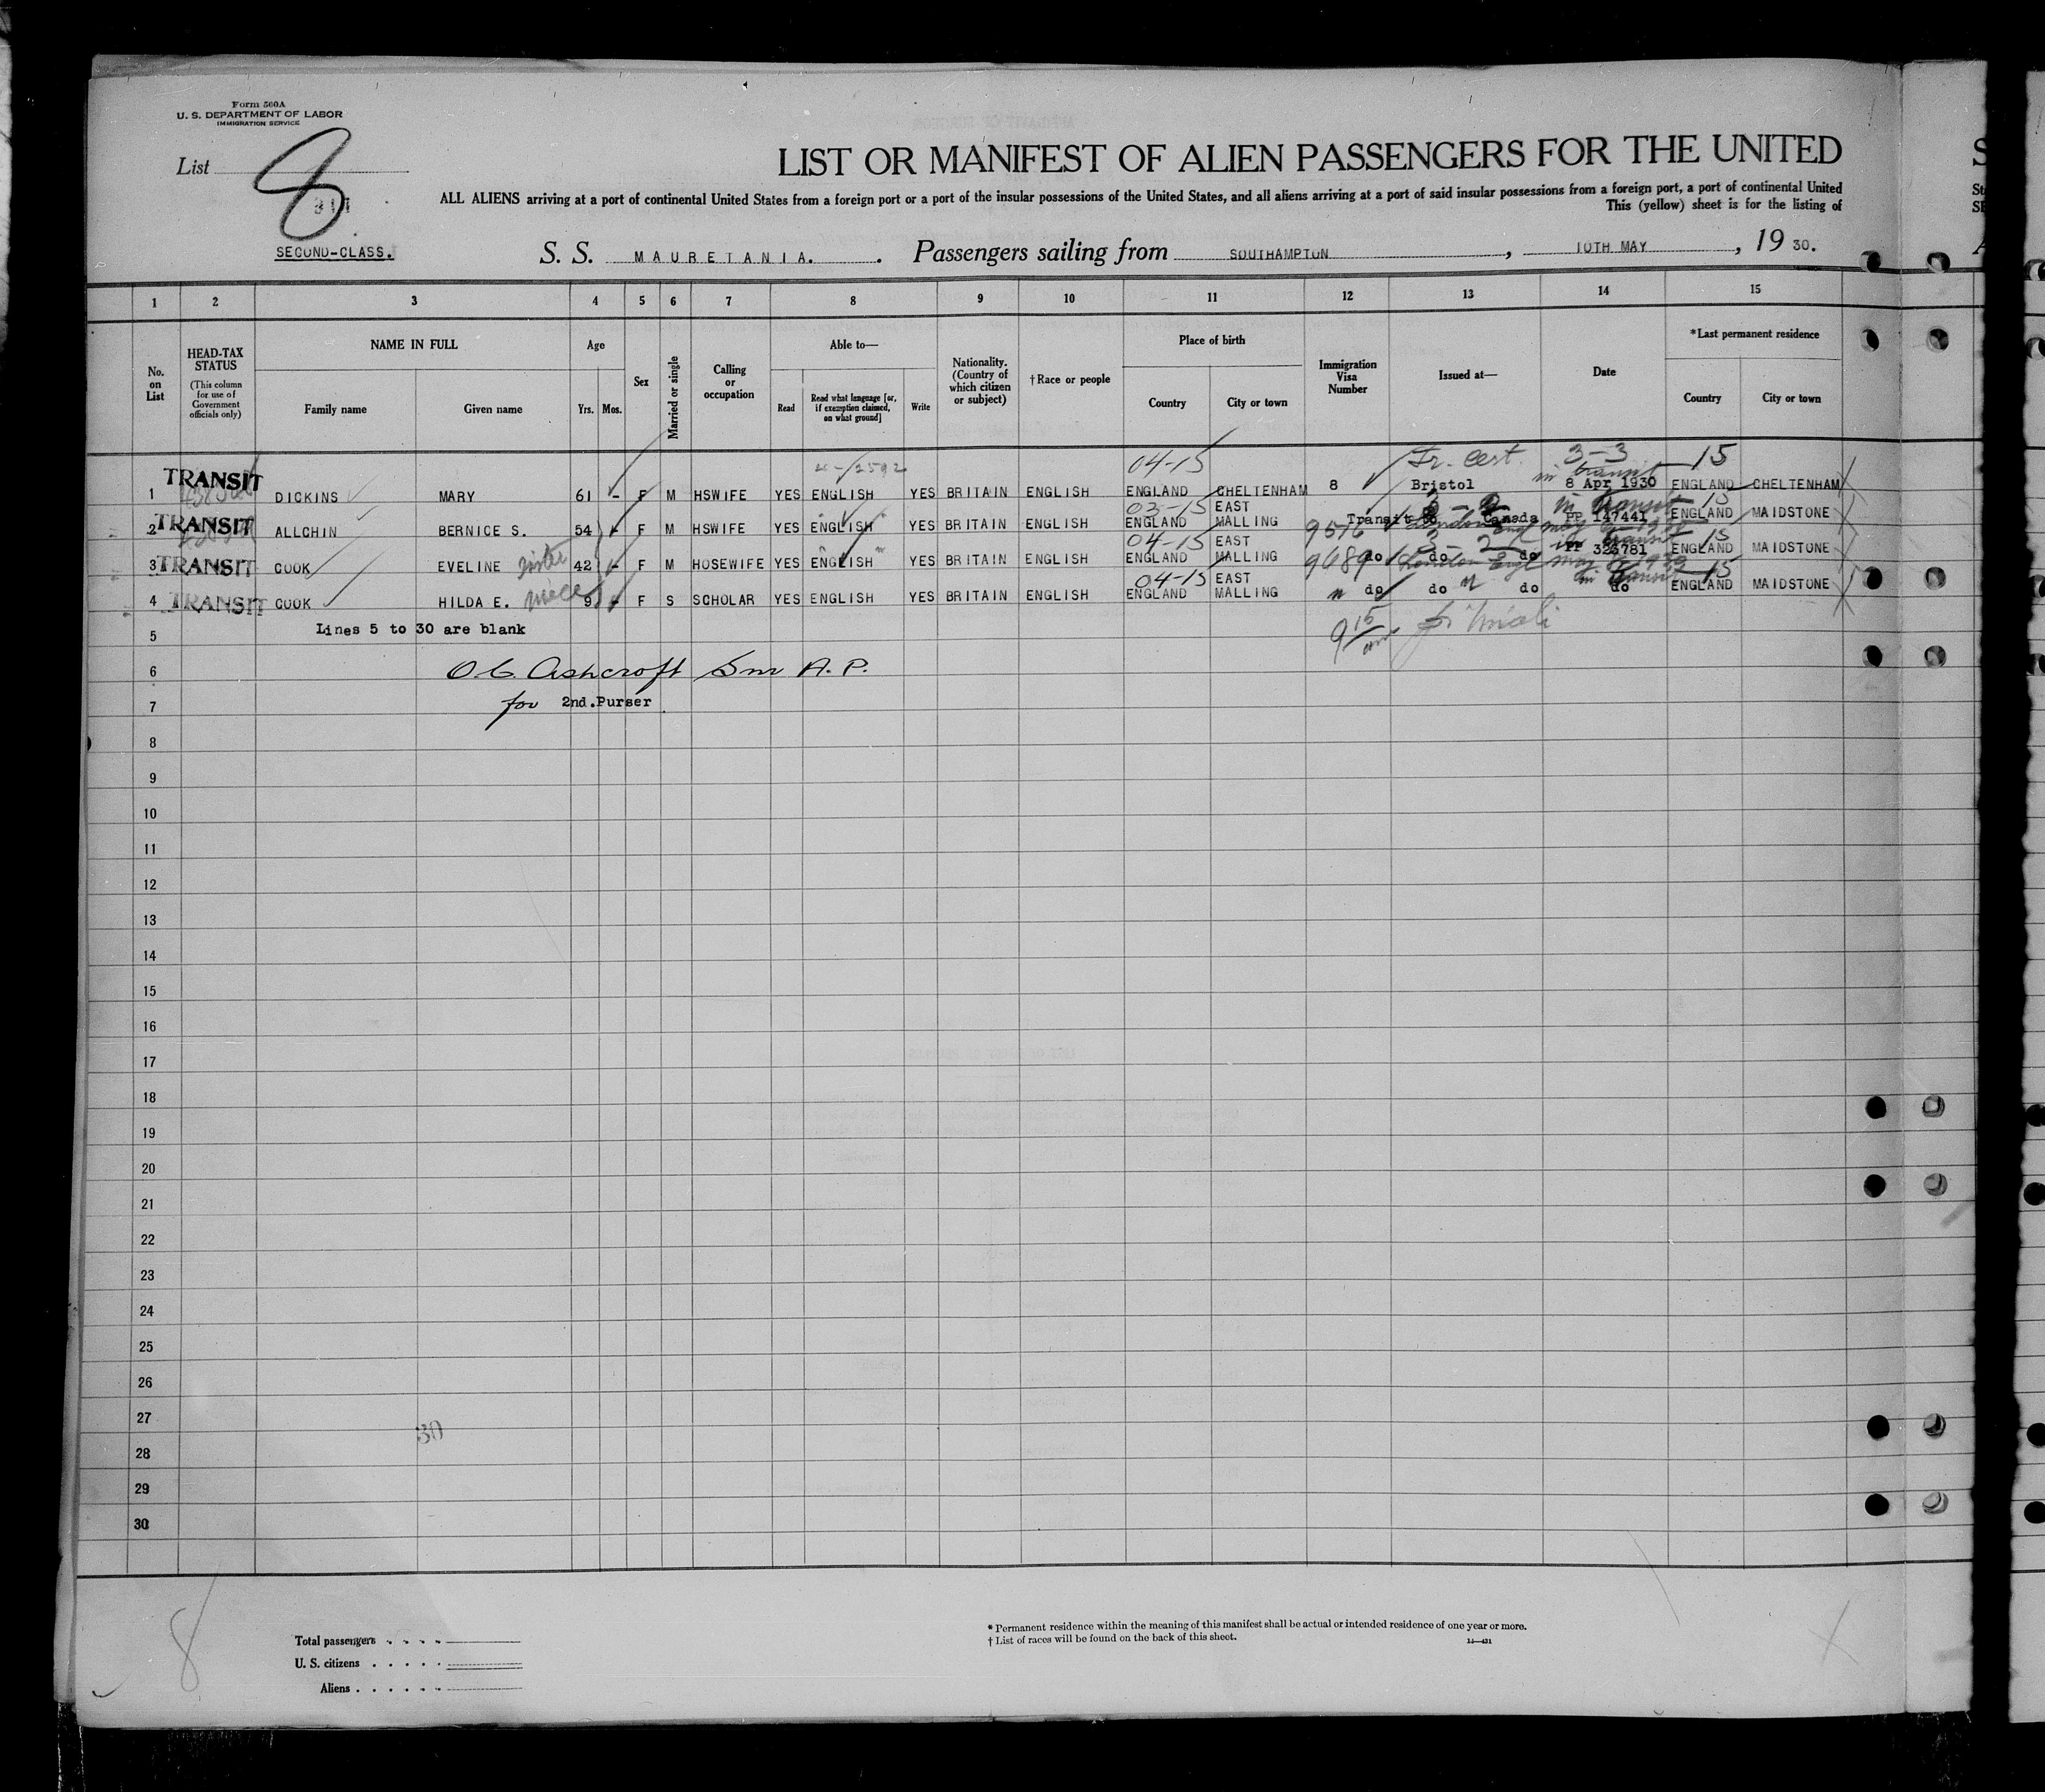 Form 500A
U. S. DEPARTMENT OF LABOR
IMMIGRATION SERVICE
List 8
LIST OR MANIFEST OF ALIEN PASSENGERS FOR THE UNITED
ALL ALIENS arriving at a port of continental United States from a foreign port or a port of the insular possessions of the United States, and all aliens arriving at a port of said insular possessions from a foreign port, a port of continental United
This (yellow) sheet is for the listing of
SECOND-CLASS. S. S. MAURETANIA. Passengers sailing from SOUTHAMPTON, 10TH MAY, 19 30.
1 2 3 4 5 6 7 8 9 10 11 12 13 14 15
No. on List
HEAD-TAX STATUS (This column for use of Government officials only)
NAME IN FULL Family name Given name
Age Yrs. Mos.
Sex
Married or single
Calling or occupation
Able to— Read Read what language [or, if exemption claimed, on what ground] Write
Nationality. (Country of which citizen or subject)
†Race or people
Place of birth Country City or town
Immigration Visa Number
Issued at—
Date
*Last permanent residence Country City or town
04-15 Tr. cert. 3-3 15
in transit
1 TRANSIT DICKINS MARY 61 - F M HSWIFE YES ENGLISH YES BRITAIN ENGLISH ENGLAND CHELTENHAM 8 Bristol 8 Apr 1930 ENGLAND CHELTENHAM
03-15 EAST in transit 15
2 TRANSIT ALLCHIN BERNICE S. 54 F M HSWIFE YES ENGLISH YES BRITAIN ENGLISH ENGLAND MALLING Transit to Canada PP 147441 ENGLAND MAIDSTONE
9516 London Eng
04-15 EAST 3-2 in transit 15
3 TRANSIT COOK EVELINE sister 42 - F M HOSEWIFE YES ENGLISH YES BRITAIN ENGLISH ENGLAND MALLING 9689 do do do PP 323781 ENGLAND MAIDSTONE
London Engl May
04-15 EAST in transit 15
4 TRANSIT COOK HILDA E. niece 9 F S SCHOLAR YES ENGLISH YES BRITAIN ENGLISH ENGLAND MALLING " do do " do do ENGLAND MAIDSTONE
5 Lines 5 to 30 are blank
915
6 Ashcroft Snr A. P.
7 for 2nd.Purser
8
9
10
11
12
13
14
15
16
17
18
19
20
21
22
23
24
25
26
27
28
29
30
8
Total passengers
U. S. citizens
Aliens
* Permanent residence within the meaning of this manifest shall be actual or intended residence of one year or more.
† List of races will be found on the back of this sheet.